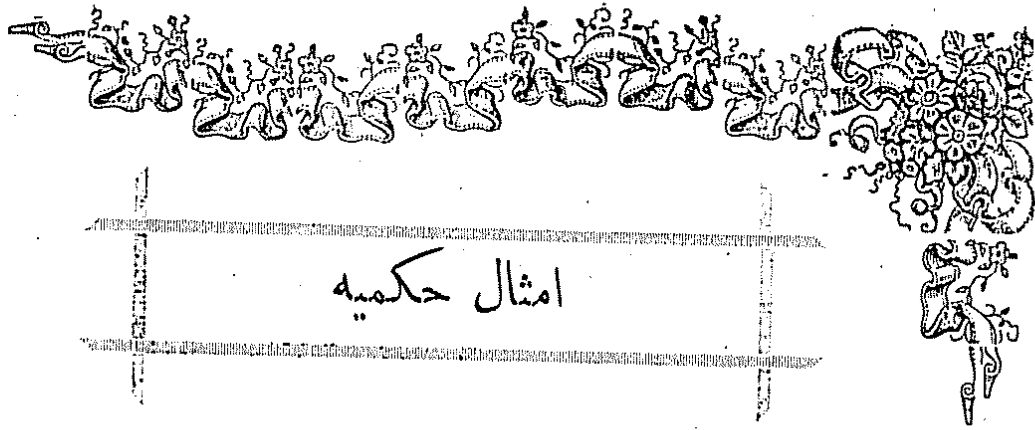 امثال حكميه